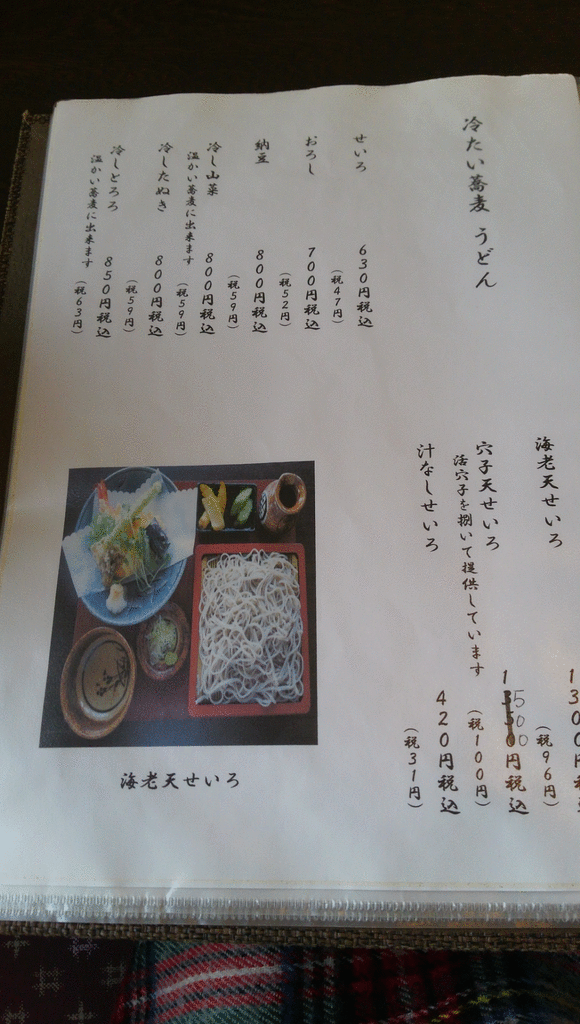 冷たい蕎麦 うどん
せいろ
630円税込
(税47円)
おろし
700円税込
(税52円)
納豆
800円税込
(税59円)
冷し山菜
温かい蕎麦に出来ます
800円税込
(税59円)
冷したぬき
800円税込
(税59円)
冷しとろろ
温かい蕎麦に出来ます
850円税込
(税63円)
海老天せいろ
1300円
(税96円)
穴子天せいろ
活穴子を捌いて提供しています
1350円税込
500
(税100円)
汁なしせいろ
420円税込
(税31円)
海老天せいろ